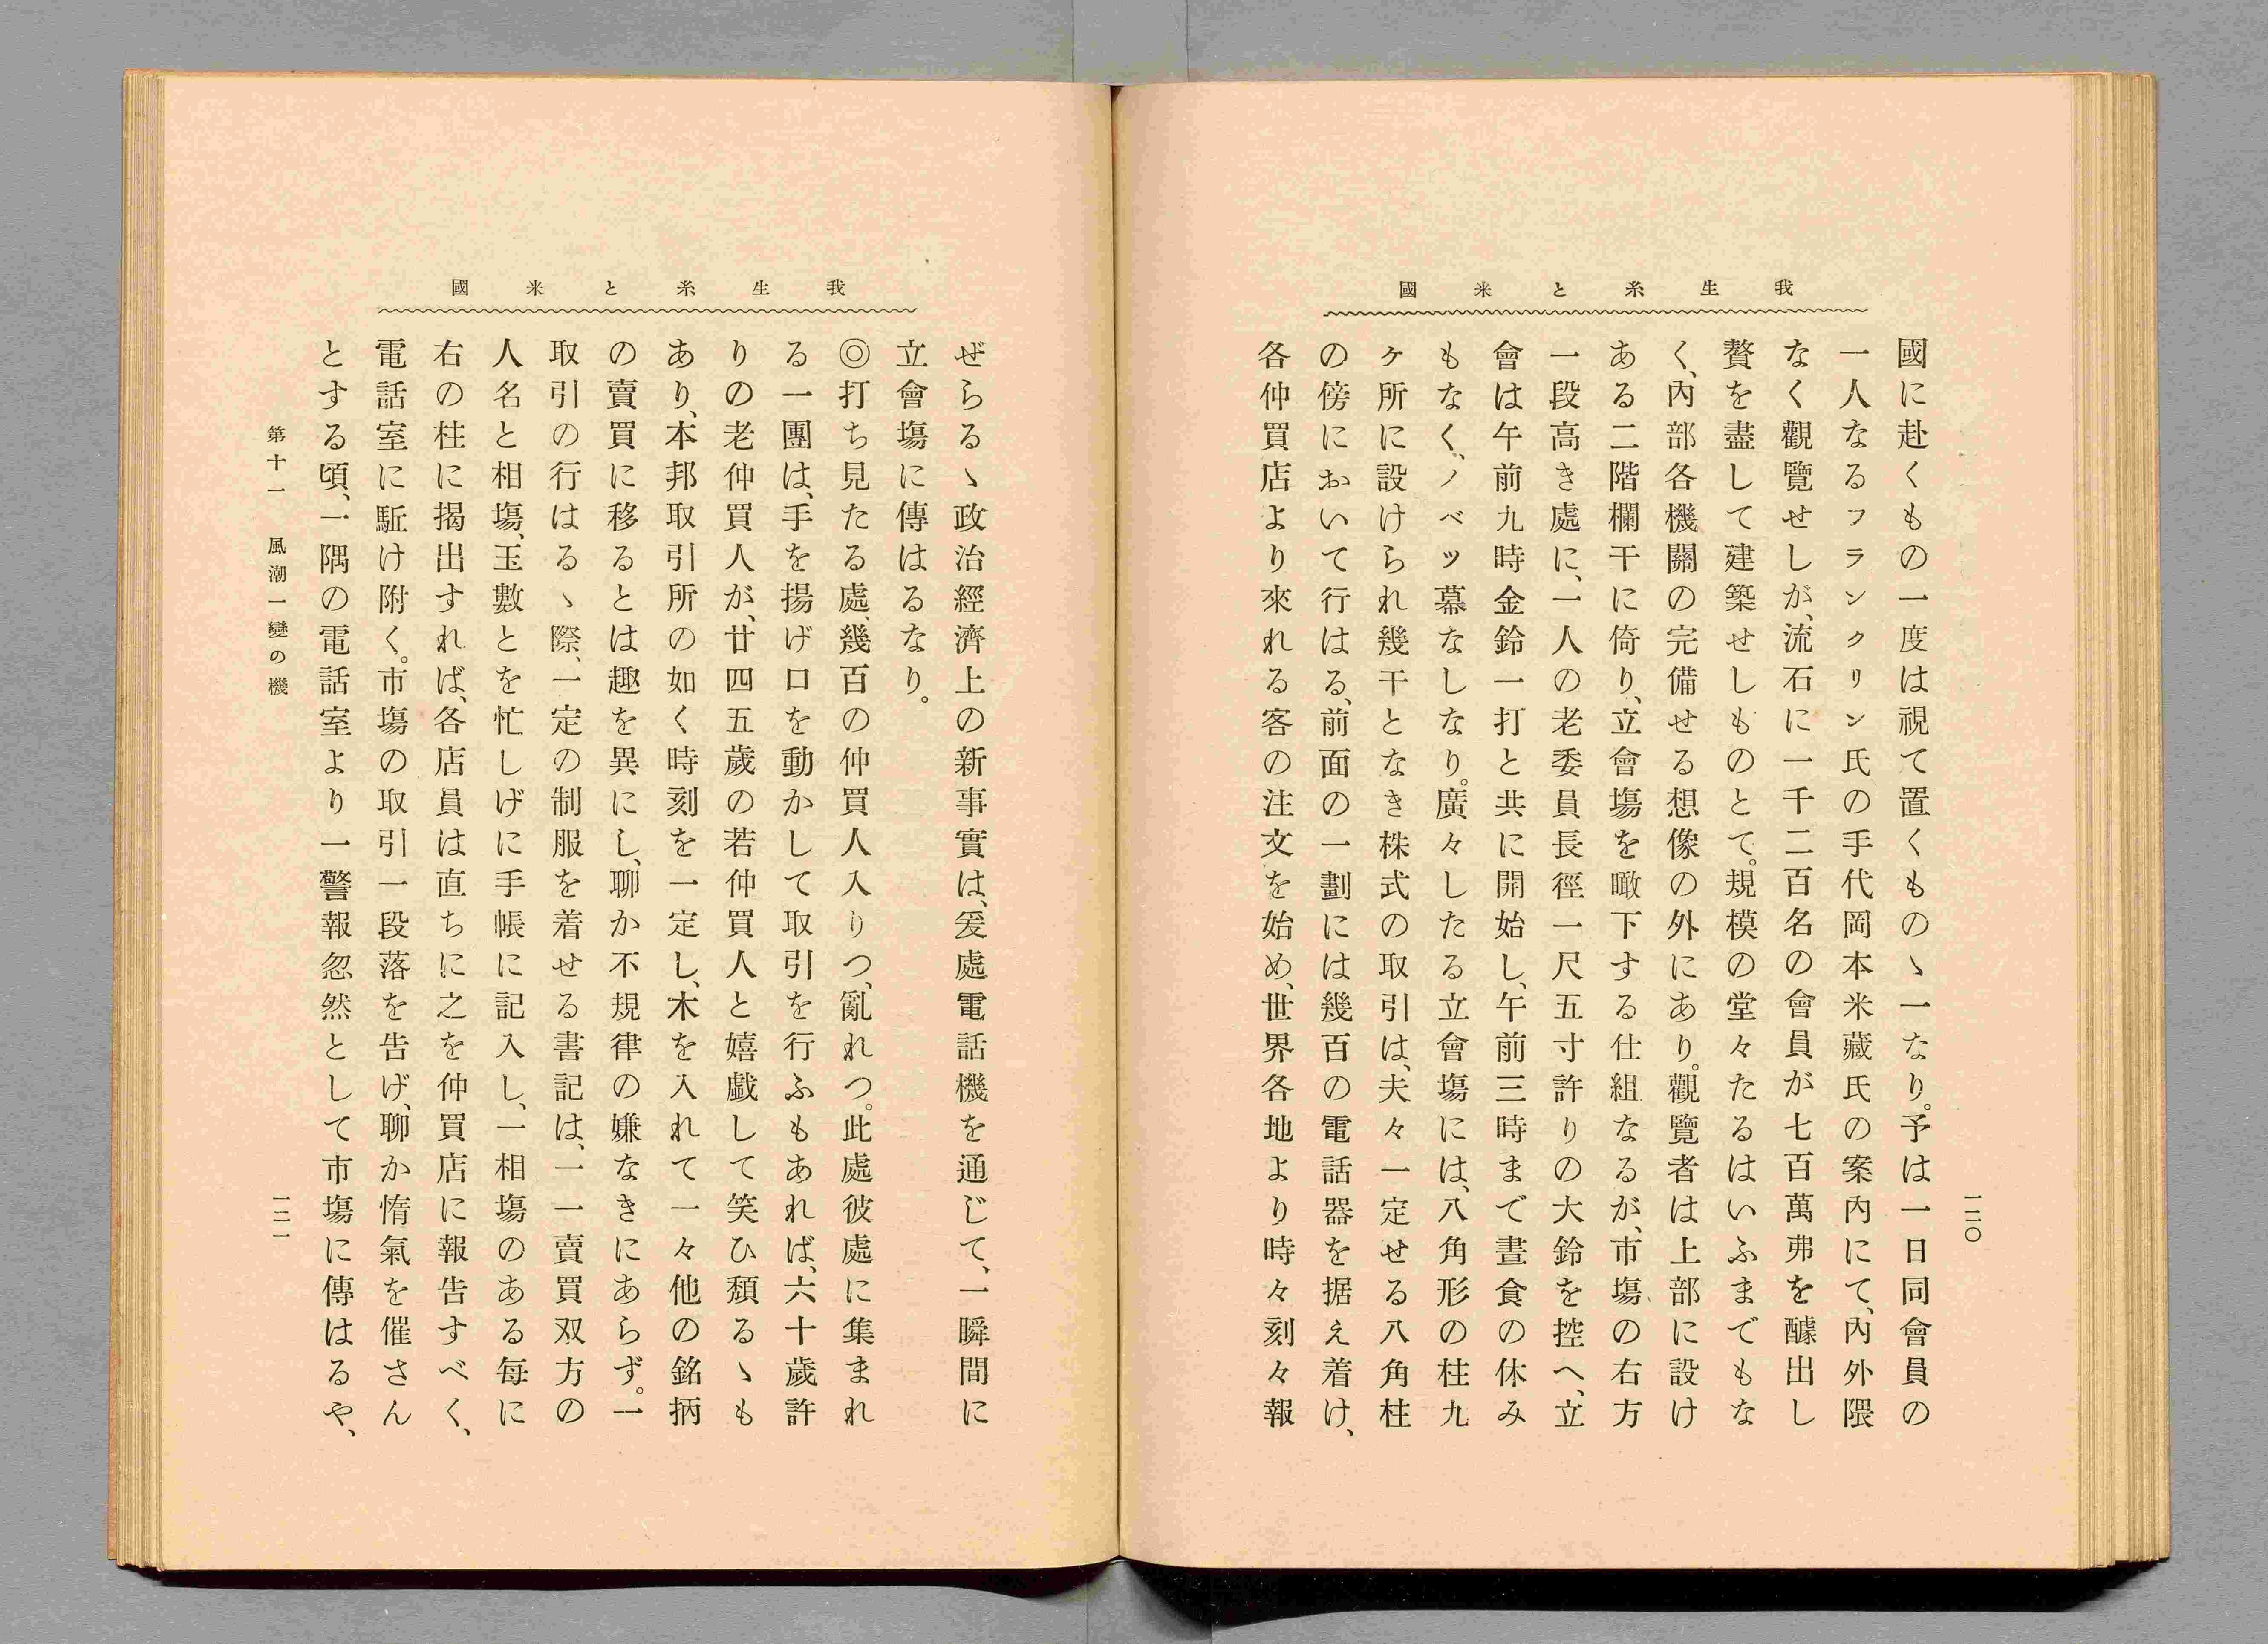 我生糸と米國
一二〇
國に赴くもの一度は視て置くものゝ一なり。予は一日同會員の
一人なるフランクリン氏の手代岡本米藏氏の案內にて、內外隈
なく觀覽せしが、流石に一千二百名の會員が七百萬弗を醵出し
贅を盡して建築せしものとて。規模の堂々たるはいふまでもな
く、內部各機關の完備せる想像の外にあり。觀覽者は上部に設け
ある二階欄干に倚り、立會塲を瞰下する仕組なるが、市塲の右方
一段高き處に、一人の老委員長徑一尺五寸許りの大鈴を控へ、立
會は午前九時金鈴一打と共に開始し、午前三時まで晝食の休み
もなく、ノベッ幕なしなり。廣々したる立會塲には、八角形の柱九
ヶ所に設けられ幾干となき株式の取引は、夫々一定せる八角柱
の傍において行はる、前面の一劃には幾百の電話器を据え着け、
各仲買店より來れる客の注文を始め、世界各地より時々刻々報
我生糸と米國
ぜらるゝ政治經濟上の新事實は、爰處電話機を通じて、一瞬間に
立會塲に傳はるなり。
◎打ち見たる處、幾百の仲買人入りつ、亂れつ。此處彼處に集まれ
る一團は、手を揚げ口を動かして取引を行ふもあれば、六十歲許
りの老仲買人が、廿四五歲の若仲買人と嬉戲して笑ひ頽るゝも
あり、本邦取引所の如く時刻を一定し、木を入れて一々他の銘柄
の賣買に移るとは趣を異にし、聊か不規律の嫌なきにあらず。一
取引の行はるゝ際、一定の制服を着せる書記は、一一賣買双方の
人名と相塲、玉數とを忙しげに手帳に記入し、一相塲のある每に
右の柱に揭出すれば、各店員は直ちに之を仲買店に報告すべく、
電話室に駈け附く。市塲の取引一段落を告げ、聊か惰氣を催さん
とする頃、一隅の電話室より一警報忽然として市塲に傳はるや、
第十一 風潮一變の機
一二一